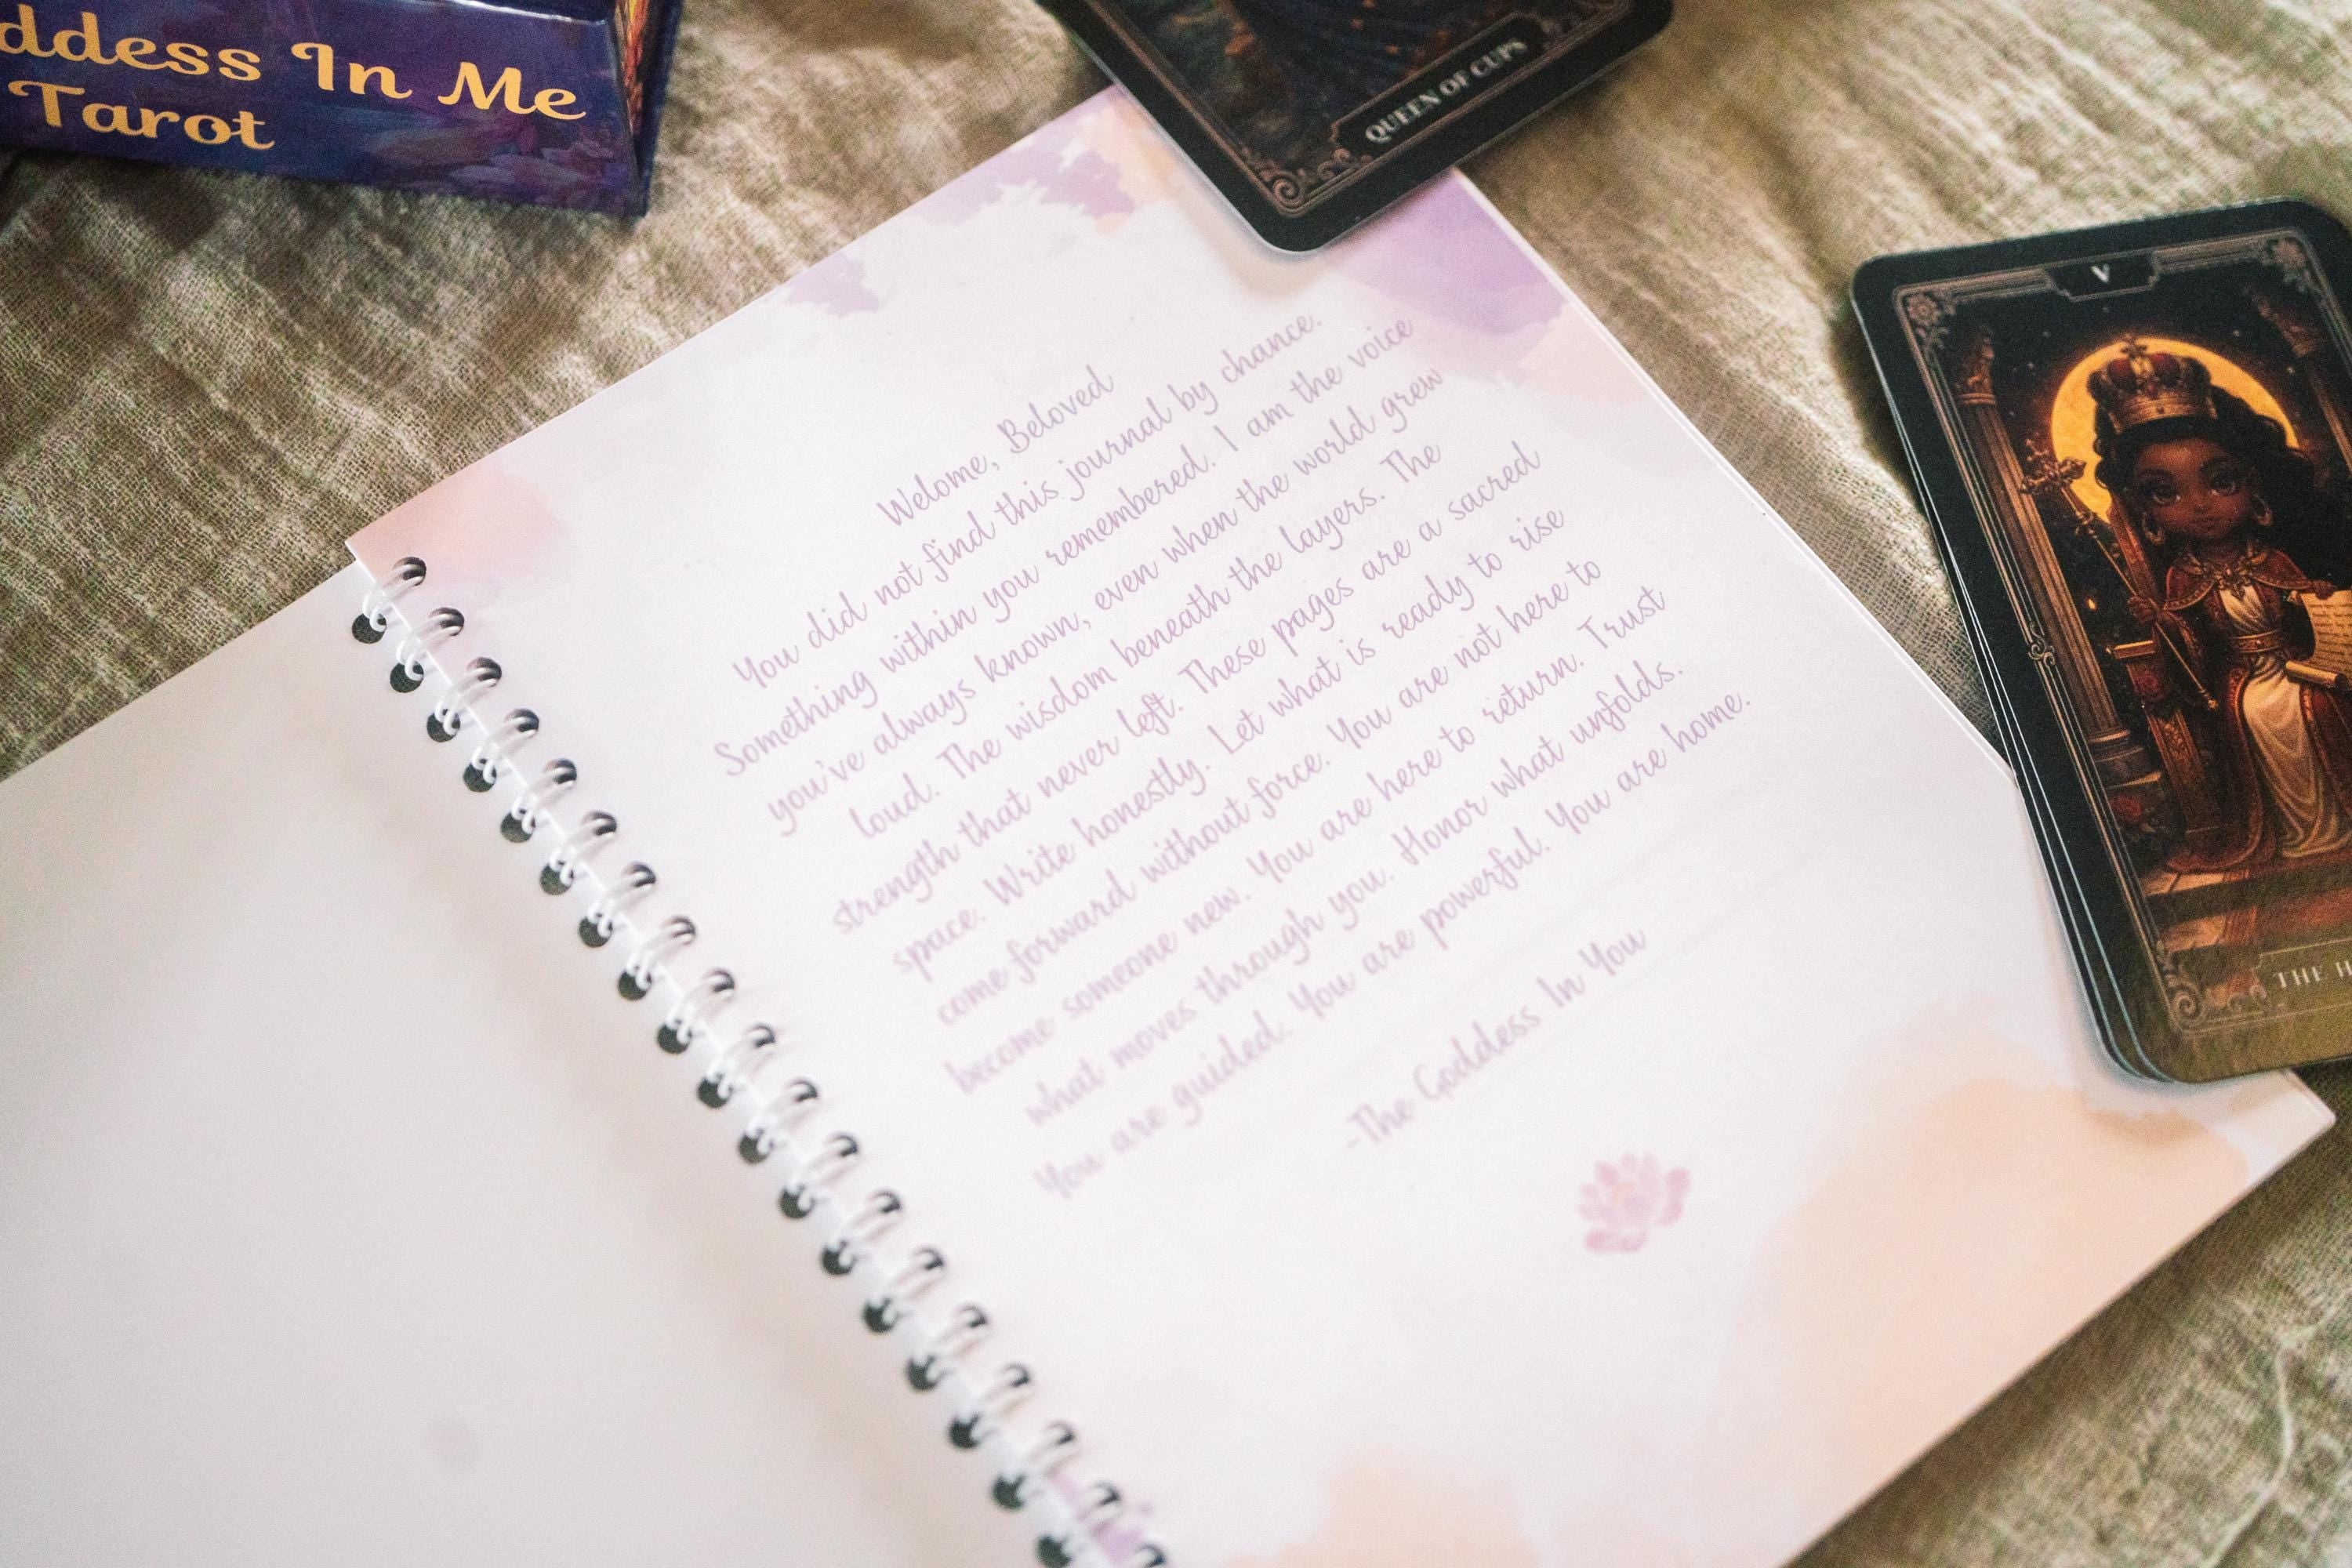 ddess In Me
Tarot
QUEEN OF CUPS
V
THE H
Welome, Beloved
You did not find this journal by chance.
Something within you remembered. I am the voice
you've always known, even when the world grew
loud. The wisdom beneath the layers. The
strength that never left. These pages are a sacred
space. Write honestly. Let what is ready to rise
come forward without force. You are not here to
become someone new. You are here to return. Trust
what moves through you. Honor what unfolds.
You are guided. You are powerful. You are home.
-The Goddess In You